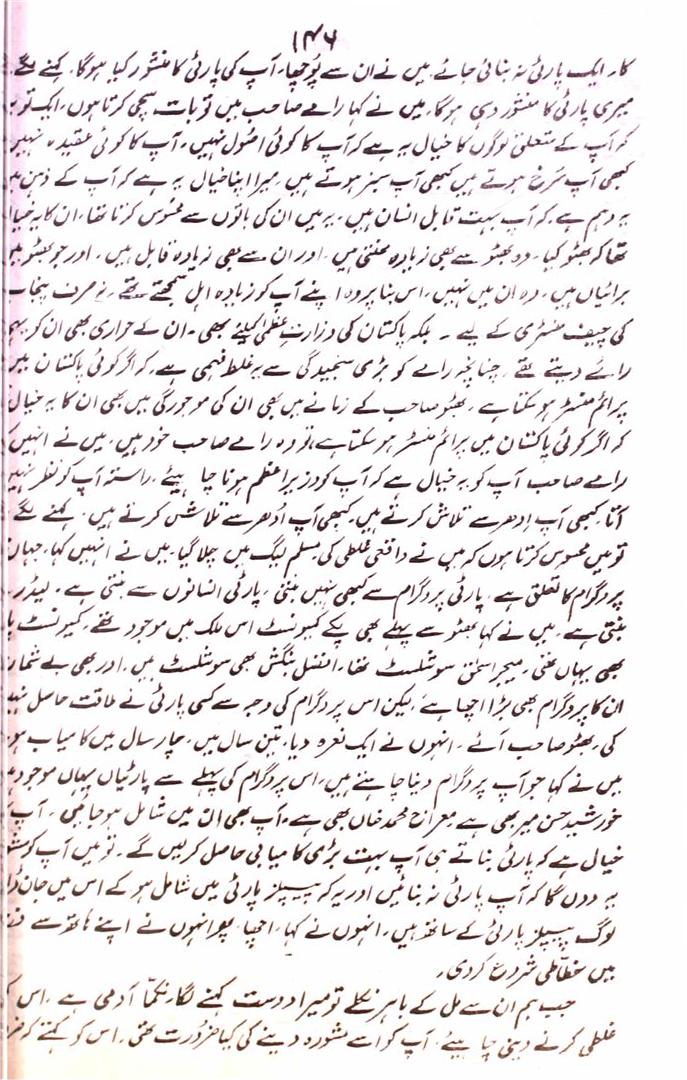 ۱۴۶
کا۔ ایک پارٹی نہ بنائی جائے میں نے ان سے پوچھا، آپ کی پارٹی کا منشور کیا ہوگا۔ کہنے لگے
میری پارٹی کا منشور وہی ہوگا، میں نے کہا رامے صاحب میں تو بات سچی کرتا ہوں، ایک تو یہ
کہ آپ کے متعلق لوگوں کا خیال یہ ہے کہ آپ کا کوئی اصول نہیں، آپ کا کوئی عقیدہ نہیں
کبھی آپ سرخ ہوتے ہیں کبھی آپ سبز ہوتے ہیں، میرا اپنا خیال یہ ہے کہ آپ کے ذہن میں
یہ وہم ہے کہ آپ بہت قابل انسان ہیں، یہ میں ان کی باتوں سے محسوس کرتا تھا، ان کا یہ خیال
تھا کہ بھٹو کیا۔ وہ بھٹو سے بھی زیادہ محنتی ہیں، اور ان سے بھی زیادہ قابل ہیں، اور جو بھٹو میں
برائیاں ہیں، وہ ان میں نہیں، اس بنا پر وہ اپنے آپ کو زیادہ اہل سمجھتے تھے، نہ صرف پنجاب
کی چیف منسٹری کے لیے ۔ بلکہ پاکستان کی وزارت عظمیٰ کیلئے بھی ۔ ان کے حواری بھی ان کو یہی
رائے دیتے تھے، چنانچہ رامے کو بڑی سنجیدگی سے یہ غلط فہمی ہے، کہ اگر کوئی پاکستان میں
پرائم منسٹر ہو سکتا ہے، بھٹو صاحب کے زمانے میں بھی ان کی موجودگی میں بھی ان کا یہ خیال
کہ اگر کوئی پاکستان میں پرائم منسٹر ہو سکتا ہے، تو وہ رامے صاحب خود ہیں، میں نے انہیں
رامے صاحب آپ کو یہ خیال ہے کہ آپ کو وزیر اعظم ہونا چاہیئے، راستہ آپ کو نظر نہیں
آتا، کبھی آپ ادھر سے تلاش کرتے ہیں، کبھی آپ اُدھر سے تلاش کرتے ہیں، کہنے لگے
تو میں محسوس کرتا ہوں کہ میں نے واقعی غلطی کی مسلم لیگ میں چلا گیا، میں نے انہیں کہا، جہاں
پروگرام کا تعلق ہے، پارٹی پروگرام سے کبھی نہیں بنتی، پارٹی انسانوں سے بنتی ہے۔ لیڈر
بنتی ہے، میں نے کہا بھٹو سے پہلے بھی پکے کمیونسٹ اس ملک میں موجود تھے، کمیونسٹ
بھی یہاں تھی، میجر اسحٰق سوشلسٹ تھا، افضل بنگش بھی سوشلسٹ ہیں، اور بھی بے شمار
ان کا پروگرام بھی بڑا اچھا ہے، لیکن اس پروگرام کی وجہ سے کسی پارٹی نے طاقت حاصل نہیں
کی، بھٹو صاحب آئے۔ انہوں نے ایک نعرہ دیا، تین سال میں، چار سال میں کامیاب
میں نے کہا جو آپ پروگرام دینا چاہتے ہیں، اس پروگرام کی پہلے سے پارٹیاں یہاں موجود
خورشید حسن میر بھی ہے معراج محمد خاں بھی ہے، آپ بھی ان میں شامل ہو جائیں، آپ
خیال ہے کہ پارٹی بناتے ہی آپ بہت بڑی کامیابی حاصل کر لیں گے۔ تو میں آپ کو
یہ دوں گا کہ آپ پارٹی نہ بنائیں اور یہ کہ پیپلز پارٹی میں شامل ہو کے اس میں جان
لوگ پیپلز پارٹی کے ساتھ ہیں، انہوں نے کہا، اچھا، پھر انہوں نے اپنے ہاتھ سے
میں خطاطی شروع کر دی۔
جب ہم ان سے مل کے باہر نکلے تو میرا دوست کہنے لگا، نکما آدمی ہے، اس
غلطی کرنے دینی چاہیئے، آپ کو اسے مشورہ دینے کی کیا ضرورت تھی، اس کو کہتے کہ